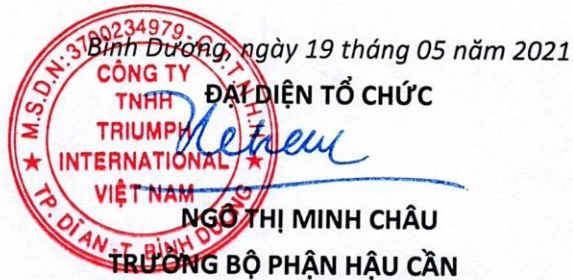 Bình Dương, ngày 19 tháng 05 năm 2021
ĐẠI DIỆN TỔ CHỨC
M.S.D.N: 3700234979 - C.T.T.N.H.H
CÔNG TY
TNHH
TRIUMPH
INTERNATIONAL
VIỆT NAM
TP. DĨ AN - T. BÌNH DƯƠNG
NGÔ THỊ MINH CHÂU
TRƯỞNG BỘ PHẬN HẬU CẦN